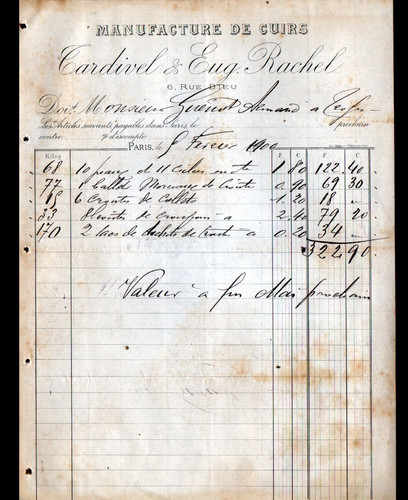 MANUFACTURE DE CUIRS
Tardivel & Eug. Rachel
6. RUE DIEU
Doit Monsieur Guenot Armand a
Les Articles suivants payables dans Paris le prochain
contre % d'escompte
PARIS, le 9 Fevrier 1900
Kilog F C F C
68 10 peaux et 11 en 1 80 122 40
77 1 Ballot Morceaux de 0 90 69 30
18 6 Croutes de Collets 1.20 18 -
33 de a 2.40 79 20
170 2 sacs de dechets de a 0.20 34 -
322 90
Valeur a fin Mai prochain